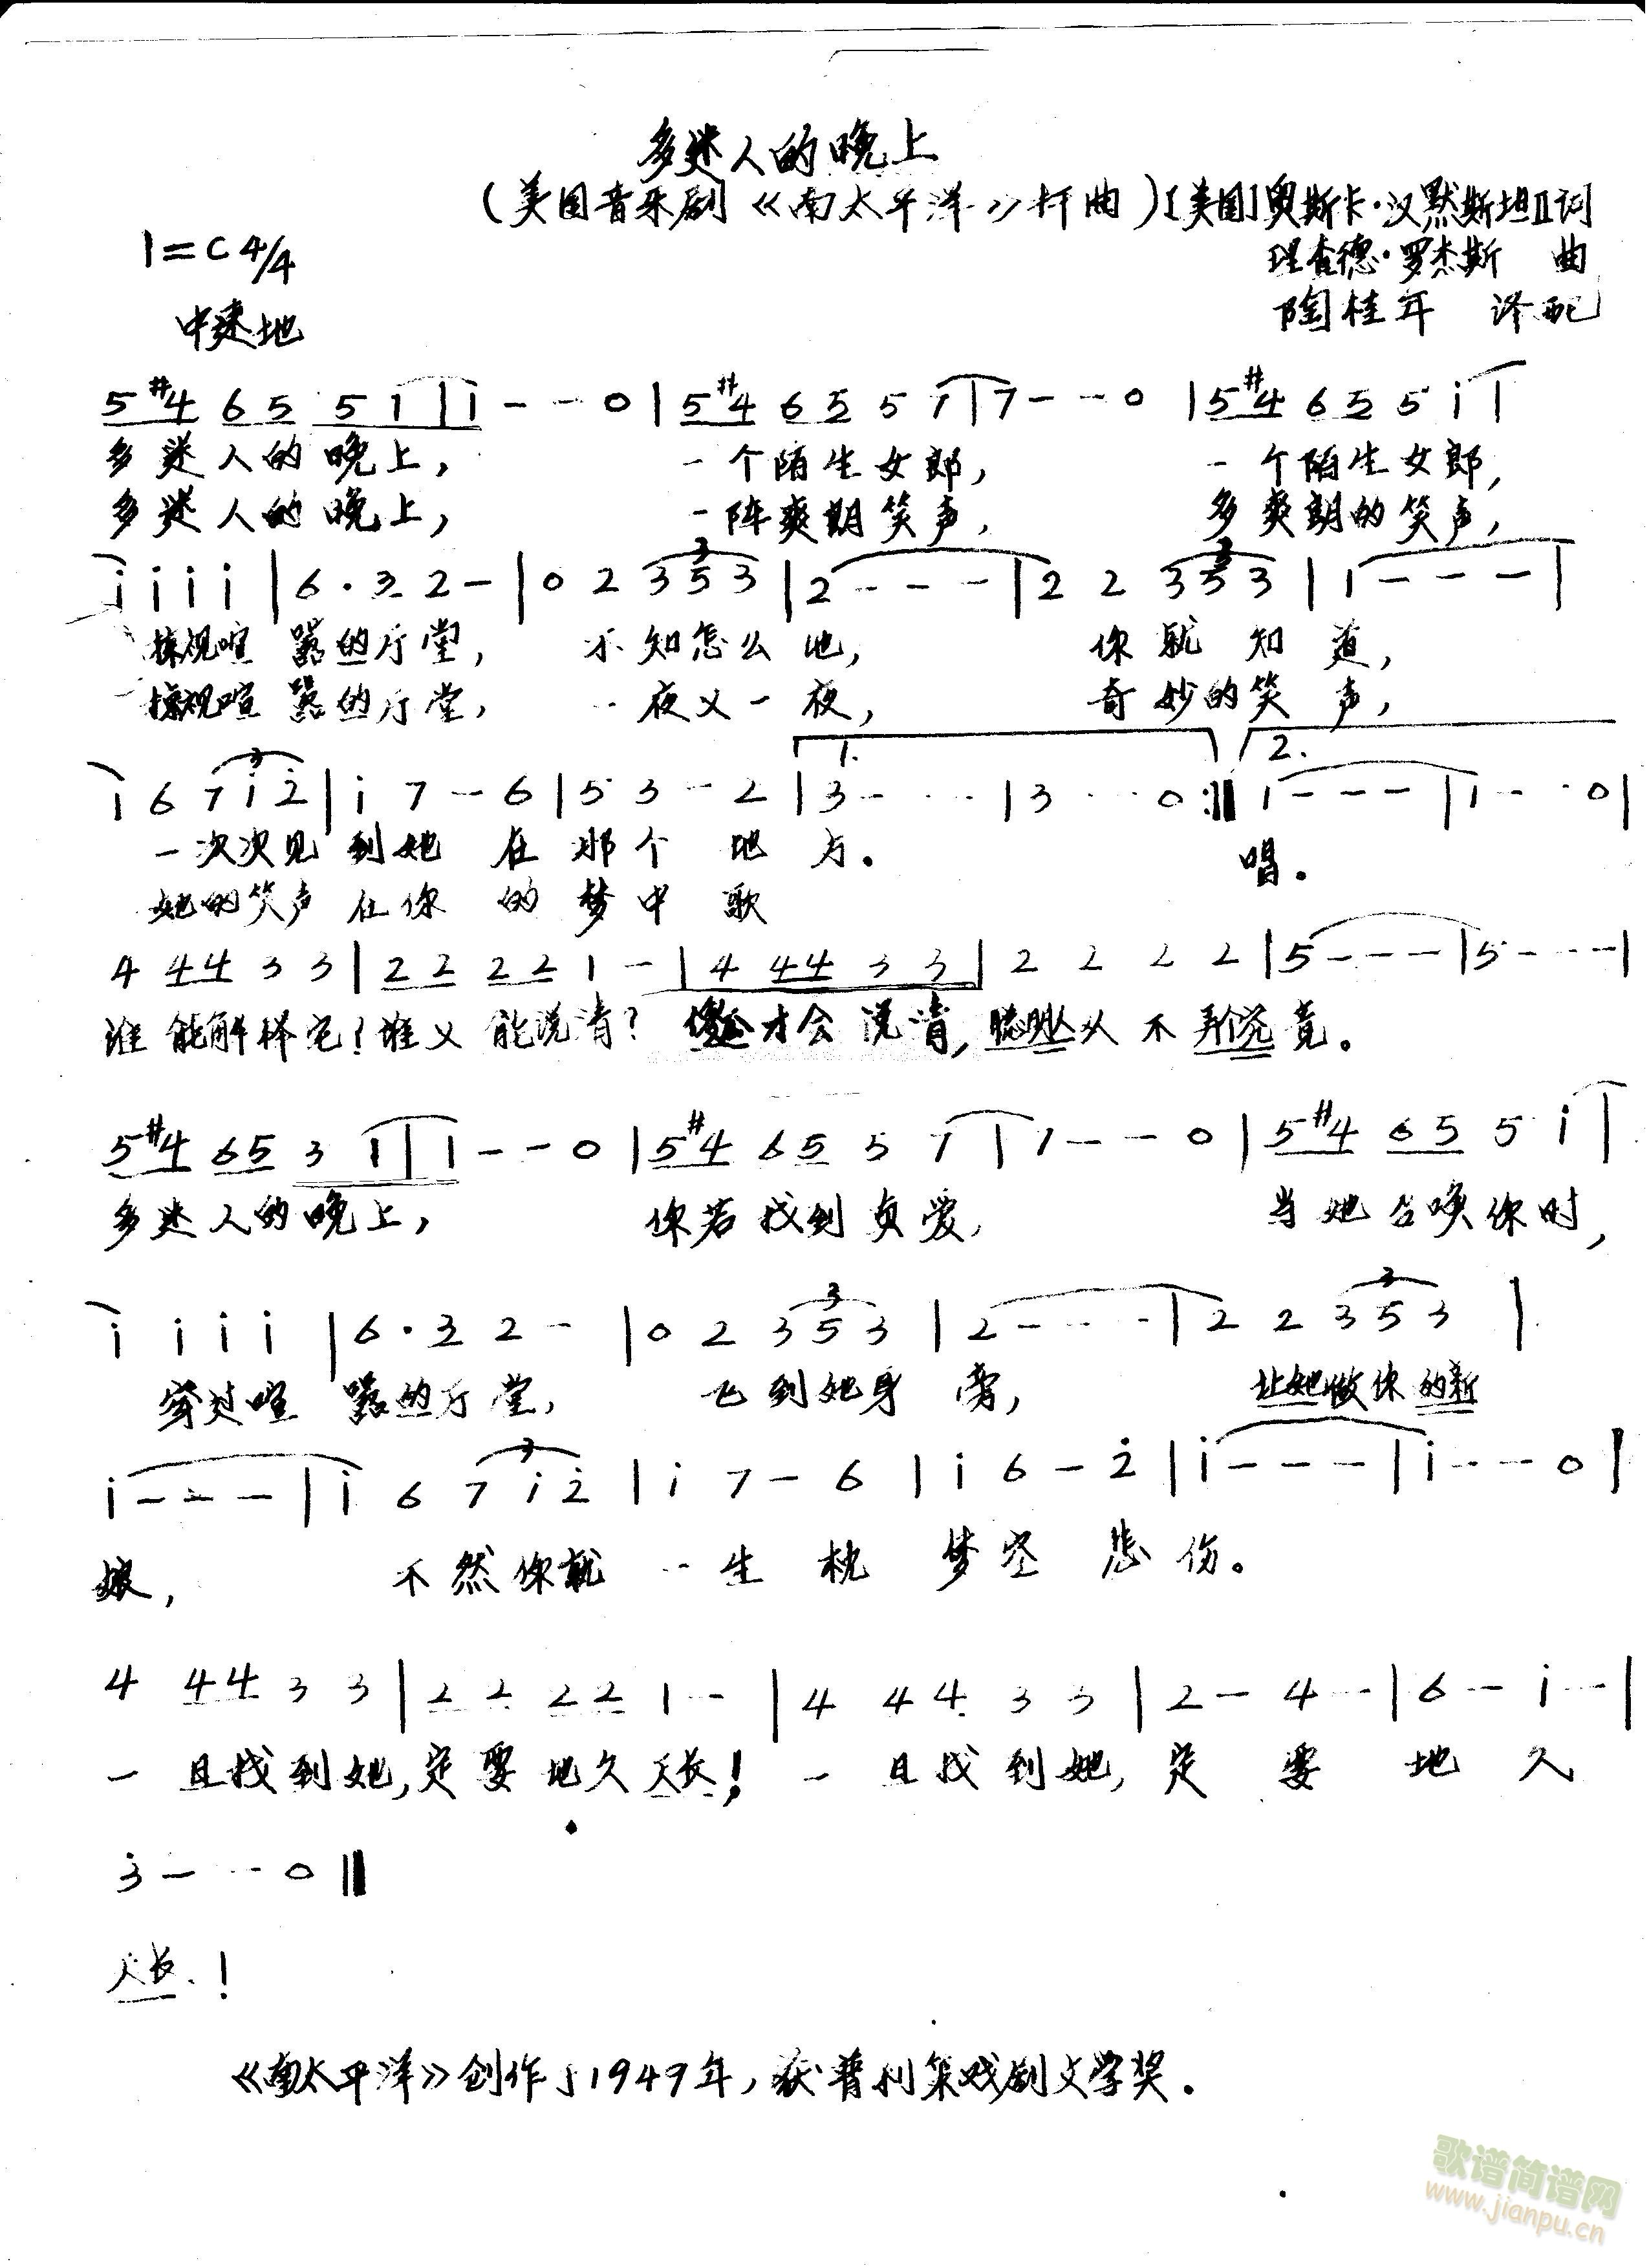 多迷人的晚上
(美国音乐剧《南太平洋》插曲)[美国]奥斯卡·汉默斯坦II词
1=C 4/4 理查德·罗杰斯 曲
中速地 陶桂年 译配
5 #4 6 5 5 1 | 1 - - 0 | 5 #4 6 5 5 7 | 7 - - 0 | 5 #4 6 5 5 i |
多迷人的晚上, 一个陌生女郎, 一个陌生女郎,
多迷人的晚上, 一阵爽朗笑声, 多爽朗的笑声,
i i i i | 6 · 3 2 - | 0 2 3 5 3 | 2 - - - | 2 2 3 5 3 | 1 - - - |
掠视喧嚣的厅堂, 不知怎么地, 你就知道,
掠视喧嚣的厅堂, 一夜又一夜, 奇妙的笑声,
1. 2.
1 6 7 i 2 | i 7 - 6 | 5 3 - 2 | 3 - - - | 3 - - 0 :|| 1 - - - | 1 - - 0 |
一次次见到她在那个地方. 唱.
她的笑声在你的梦中歌
4 4 4 3 3 | 2 2 2 2 1 - | 4 4 4 3 3 | 2 2 2 2 | 5 - - - | 5 - - - |
谁能解释它!谁又能说清? 才会说清, 聪明人从不 究竟。
5 #4 6 5 3 1 | 1 - - 0 | 5 #4 6 5 5 7 | 7 - - 0 | 5 #4 6 5 5 i |
多迷人的晚上, 你若找到真爱, 当她召唤你时,
i i i i | 6 · 3 2 - | 0 2 3 5 3 | 2 - - - | 2 2 3 5 3 |
穿过喧嚣的厅堂, 飞到她身旁, 让她做你的新
i - - - | i 6 7 i 2 | i 7 - 6 | i 6 - 2 | i - - - | i - - 0 |
娘, 不然你就一生枕梦空悲伤。
4 4 4 3 3 | 2 2 2 2 1 - | 4 4 4 3 3 | 2 - 4 - | 6 - i - |
一旦找到她,定要地久天长! 一旦找到她,定要地久
3 - - 0 ||
天长!
《南太平洋》创作于1949年,获普利策戏剧文学奖.
歌谱简谱网
www.jianpu.cn